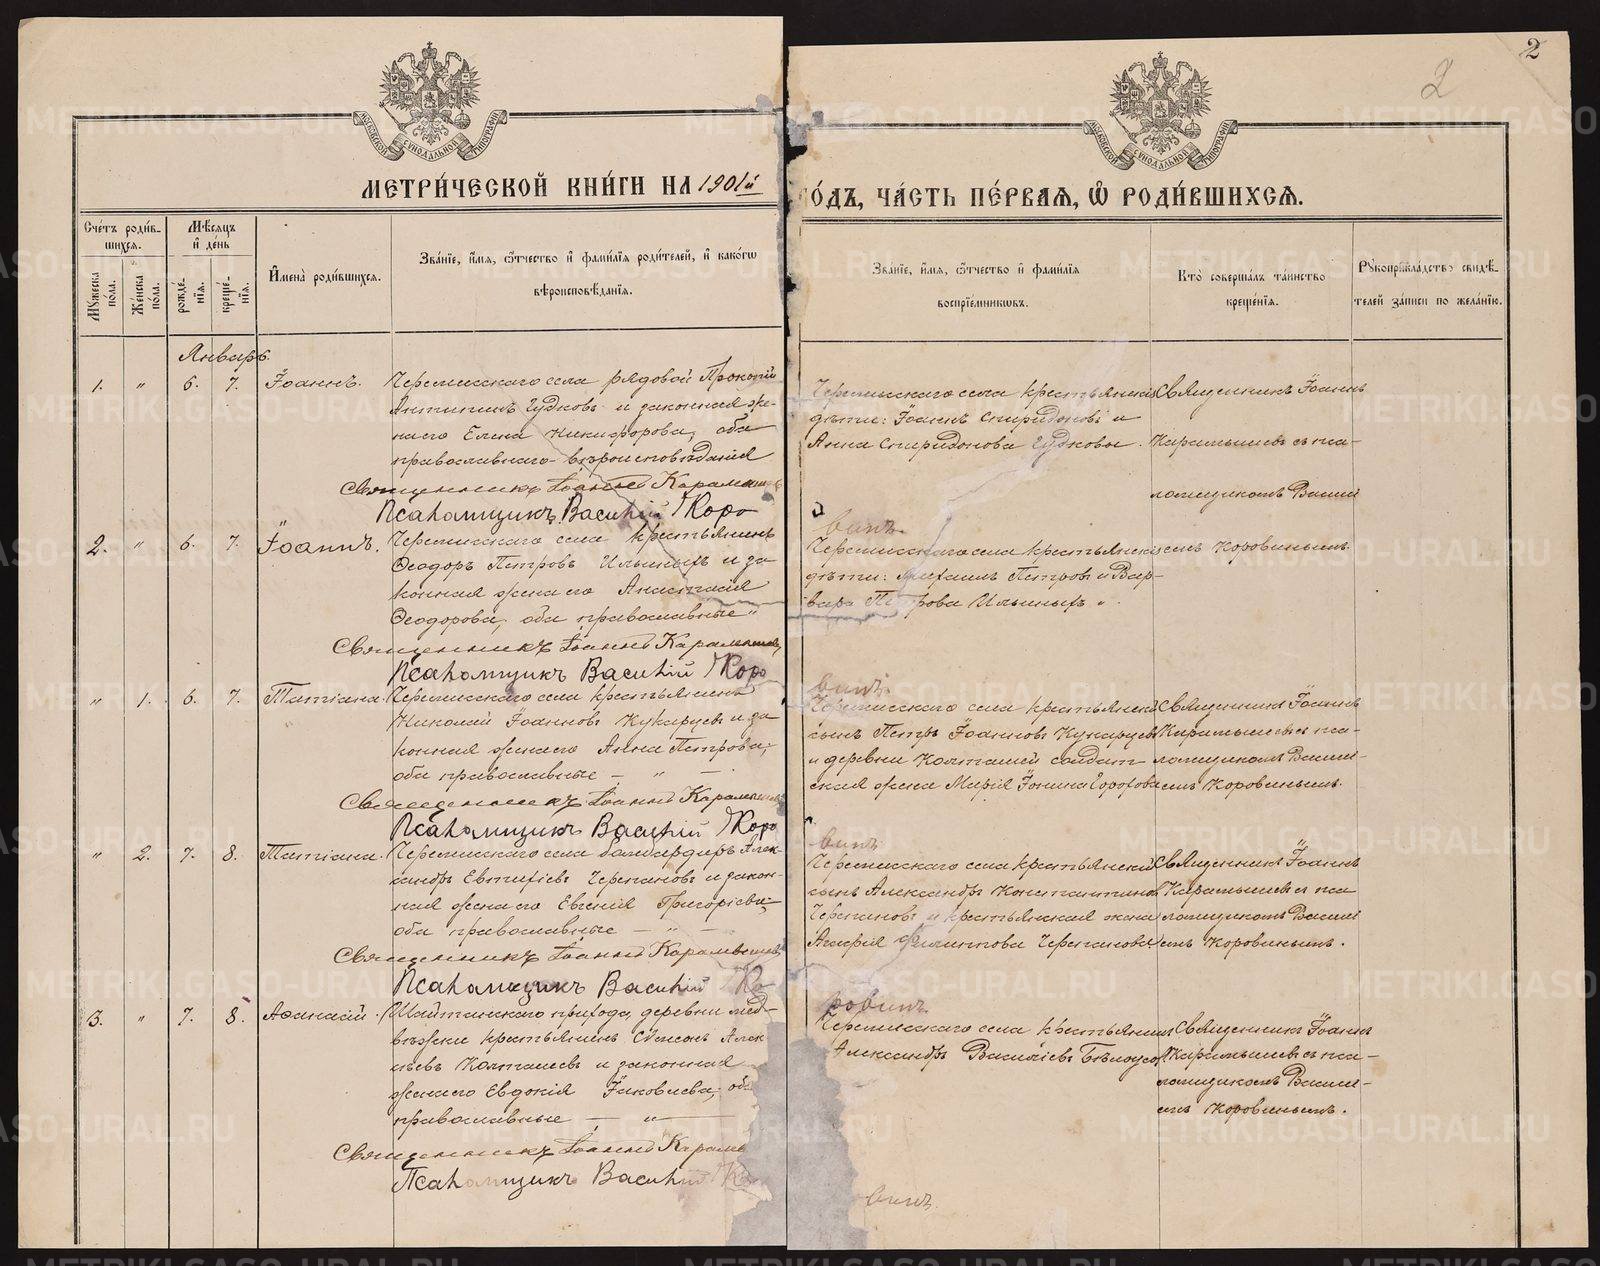 2
2
МОСКОВСКОЙ СѴНОДАЛЬНОЙ ТИПОГРАФІИ
МОСКОВСКОЙ СѴНОДАЛЬНОЙ ТИПОГРАФІИ
МЕТРИ́ЧЕСКОЙ КНИ́ГИ НА 1901й ГО́ДЪ, ЧА́СТЬ ПЕ́РВАЯ, Ѽ РОДИ́ВШИХСЯ.
Сче́тъ роди́в-
шихся.
Мѣ́сяцъ
и҆ де́нь
Му́жеска
по́ла.
Же́нска
по́ла.
рожде́-
нія.
креще́-
нія.
И҆мена̀ роди́вшихся.
Зва́ніе, и҆́мя, ѻ҆́тчество и҆ фами́лія роди́телей, и҆ како́гѡ
вѣроисповѣ́данія.
Зва́ніе, и҆́мя, ѻ҆́тчество и҆ фами́лія
воспріе́мниковъ.
Кто̀ соверша́лъ та́инство
креще́нія.
Рукоприкла́дство свидѣ́-
телей за́писи по жела́нію.
Январь.
1. " 6. 7. Іоаннъ.
Черемисскаго села рядовой Прокопій
Антипинъ Гудковъ и законная же-
на его Елена Никифорова, оба
православнаго вѣроисповѣданія
Священникъ Іоаннъ Карамышевъ
Псаломщикъ Василій Коро
винъ.
Черемисскаго села крестьянскія
дѣти: Іоаннъ Спиридоновъ и
Анна Спиридонова Гудковы.
Священникъ Іоаннъ
Карамышевъ съ пса-
ломщикомъ Васили
емъ Коровинымъ.
2. " 6. 7. Іоаннъ.
Черемисскаго села крестьянинъ
Ѳеодоръ Петровъ Ильиныхъ и за
конная жена его Анастасія
Ѳеодорова, оба православные "
Священникъ Іоаннъ Карамышевъ
Псаломщикъ Василій Коро
винъ.
Черемисскаго села крестьянскія
дѣти: Михаилъ Петровъ и Вар-
вара Петрова Ильиныхъ ".
" 1. 6. 7. Татіана.
Черемисскаго села крестьянинъ
Николай Іоанновъ Кукарцевъ и за
конная жена его Анна Петрова,
оба православные — " —
Священникъ Іоаннъ Карамышевъ
Псаломщикъ Василій Коро
винъ.
Черемисскаго села крестьянскій
сынъ Петръ Іоанновъ Кукарцевъ
и деревни Колташей солдат
ская жена Марія Іонина
Священникъ Іоаннъ
Карамышевъ съ пса-
ломщикомъ Васили-
емъ Коровинымъ.
" 2. 7. 8. Татіана.
Черемисскаго села бомбардиръ Алек-
сандръ Евтихіевъ Черепановъ и закон-
ная жена его Евгенія Григорьева,
оба православные — " —
Священникъ Іоаннъ Карамышевъ
Псаломщикъ Василій Ко
ровинъ.
Черемисскаго села крестьянскій
сынъ Александръ Константинов
Черепановъ и крестьянская жена
Агафія Филиппова Черепанова
Священникъ Іоаннъ
Карамышевъ съ пса
ломщикомъ Васили
емъ Коровинымъ.
3. " 7. 8. Аѳанасій.
Шайтанскаго прихода, деревни мед-
вѣжки крестьянинъ Симеонъ Алек
сѣевъ Колташевъ и законная
жена его Евдокія Іаковлева, оба
православные — " —
Священникъ Іоаннъ Карамы
Псаломщикъ Василій Ко
винъ.
Черемисскаго села крестьянинъ
Александръ Василіевъ Бѣлоусов
Священникъ Іоаннъ
Карамышевъ съ пса-
ломщикомъ Васили-
емъ Коровинымъ.
METRIKI.GASO-URAL.RU